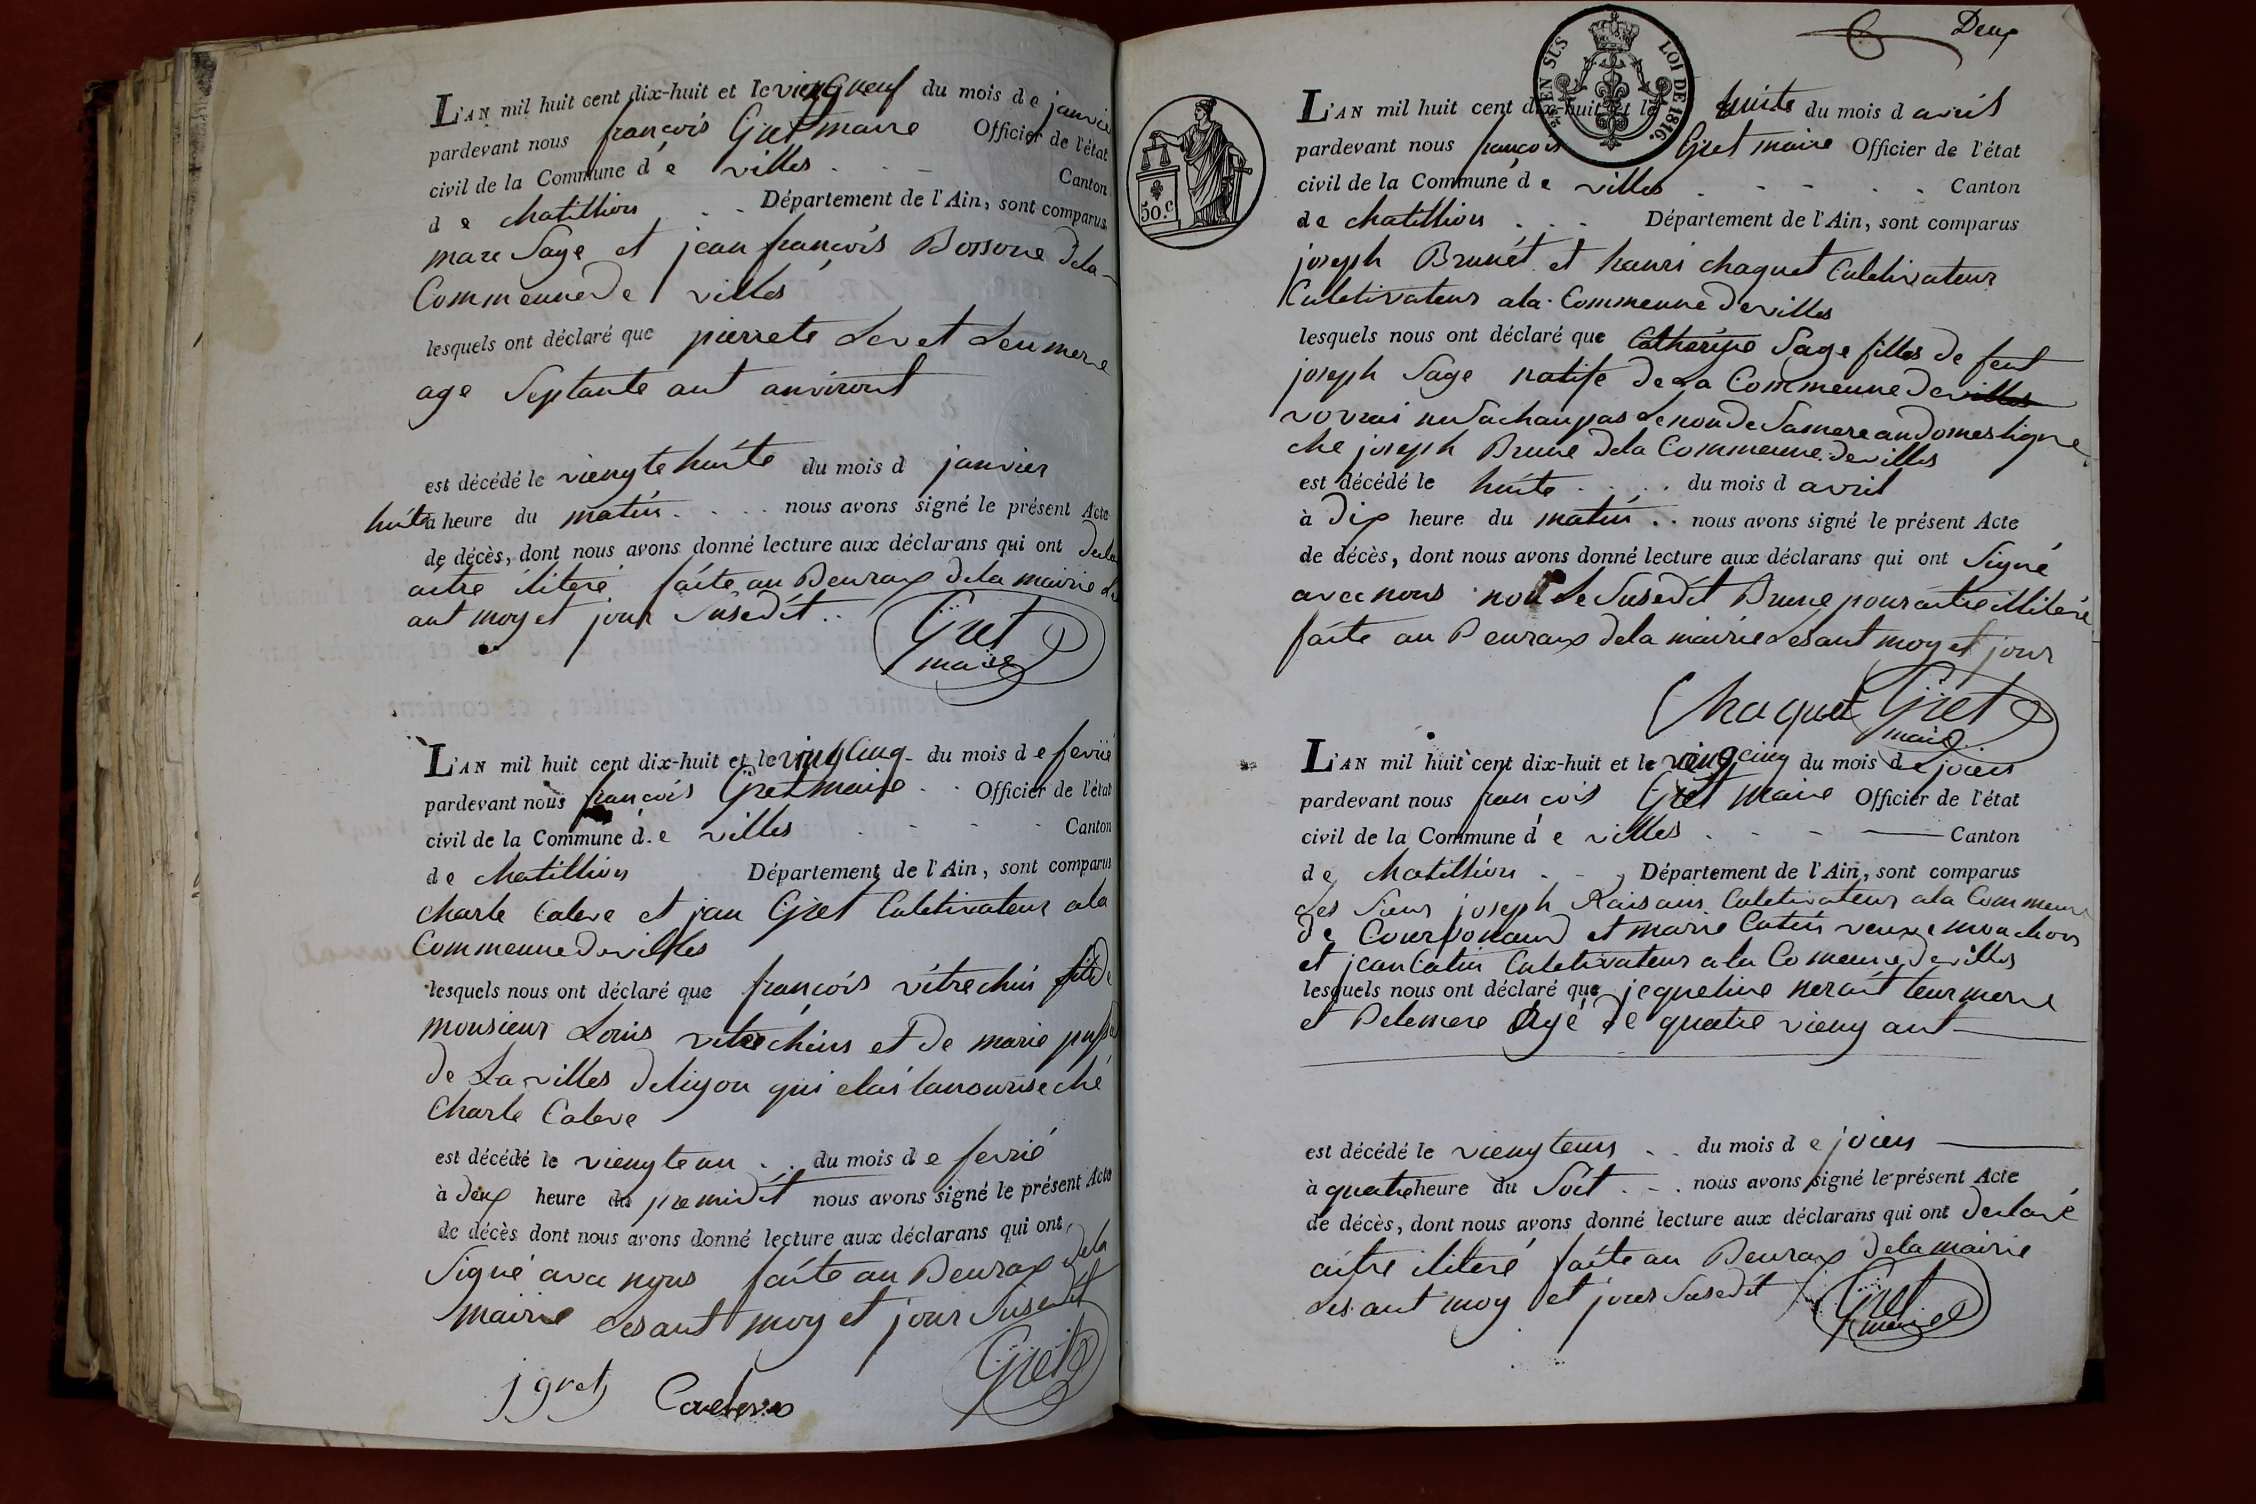 L'AN mil huit cent dix-huit et le viengneuf du mois de janvie
pardevant nous françois Gret maire Officier de l'état
civil de la Commune de villes Canton
de chatillion Département de l'Ain, sont comparus
marc Sage et jean françois Bossone dela
Commeunne de villes
lesquels ont déclaré que pierrete Levet Leu mere
age Septante ant anviront
est décédé le viengtehuite du mois d janvier
huite à heure du matin nous avons signé le présent Acte
de décès, dont nous avons donné lecture aux déclarans qui ont decla
aitre ilitere faite au Beuraux dela mairie Les
ant moy et jour Susedit
Gret
maire
L'AN mil huit cent dix-huit et le viengcinq du mois de fevrié
pardevant nous françois Gret maire Officier de l'état
civil de la Commune d.e villes Canton
de chatillion Département de l'Ain, sont comparus
charle Caleve et jean Gret Culetivateur ala
Commeunne de villes
lesquels nous ont déclaré que françois vitrechin fils de
monsieur Louis vitrechins et de marie
de La villes deliyon qui etai ché
Charle Caleve
est décédé le viengteun du mois de fevrié
à deux heure du premidit nous avons signé le présent Acte
de décès dont nous avons donné lecture aux déclarans qui ont
Signé avec nous faite au Beuraux dela
mairie Lesant moy et jour Susedit
Gret
j gret Caeleve
Deux
2.e EN SUS LOI DE 1816.
50.c
L'AN mil huit cent dix-huit et le huite du mois d avril
pardevant nous françois Gret maire Officier de l'état
civil de la Commune de villes Canton
de chatillion Département de l'Ain, sont comparus
joseph Brunet et hanri chaquet Culetivateur
Culetivateur ala Commeunne de villes
lesquels nous ont déclaré que Catherine Sage filles de feut
joseph Sage natife de La Commeunne de villes
vovrai nu Sachan pas Le non de Samere an domestique
ché joseph Brune dela Commeunne de villes
est décédé le huite du mois d avril
à dix heure du matin nous avons signé le présent Acte
de décès, dont nous avons donné lecture aux déclarans qui ont Signé
avec nous non Le Susedit Brune pour aitre illiteré
faite au Beuraux dela mairie Lesant moy et jour
Chaquet Gret
maire
L'AN mil huit cent dix-huit et le viengcinq du mois de joien
pardevant nous françois Gret maire Officier de l'état
civil de la Commune de villes Canton
de chatillion Département de l'Ain, sont comparus
Les Sieur joseph Raisani Culetivateur ala Commeune
de et marie Catin veuve
et jean Catin Culetivateur ala Comeune de villes
lesquels nous ont déclaré que jequeline nerait leur mere
et Belemere Agé de quatre vieng ant
est décédé le viengteun du mois de joien
à quatre heure du Soit nous avons signé le présent Acte
de décès, dont nous avons donné lecture aux déclarans qui ont declaré
aitre ilitere faite au Beuraux dela mairie
Les ant moy et jour Susedit
Gret
maire